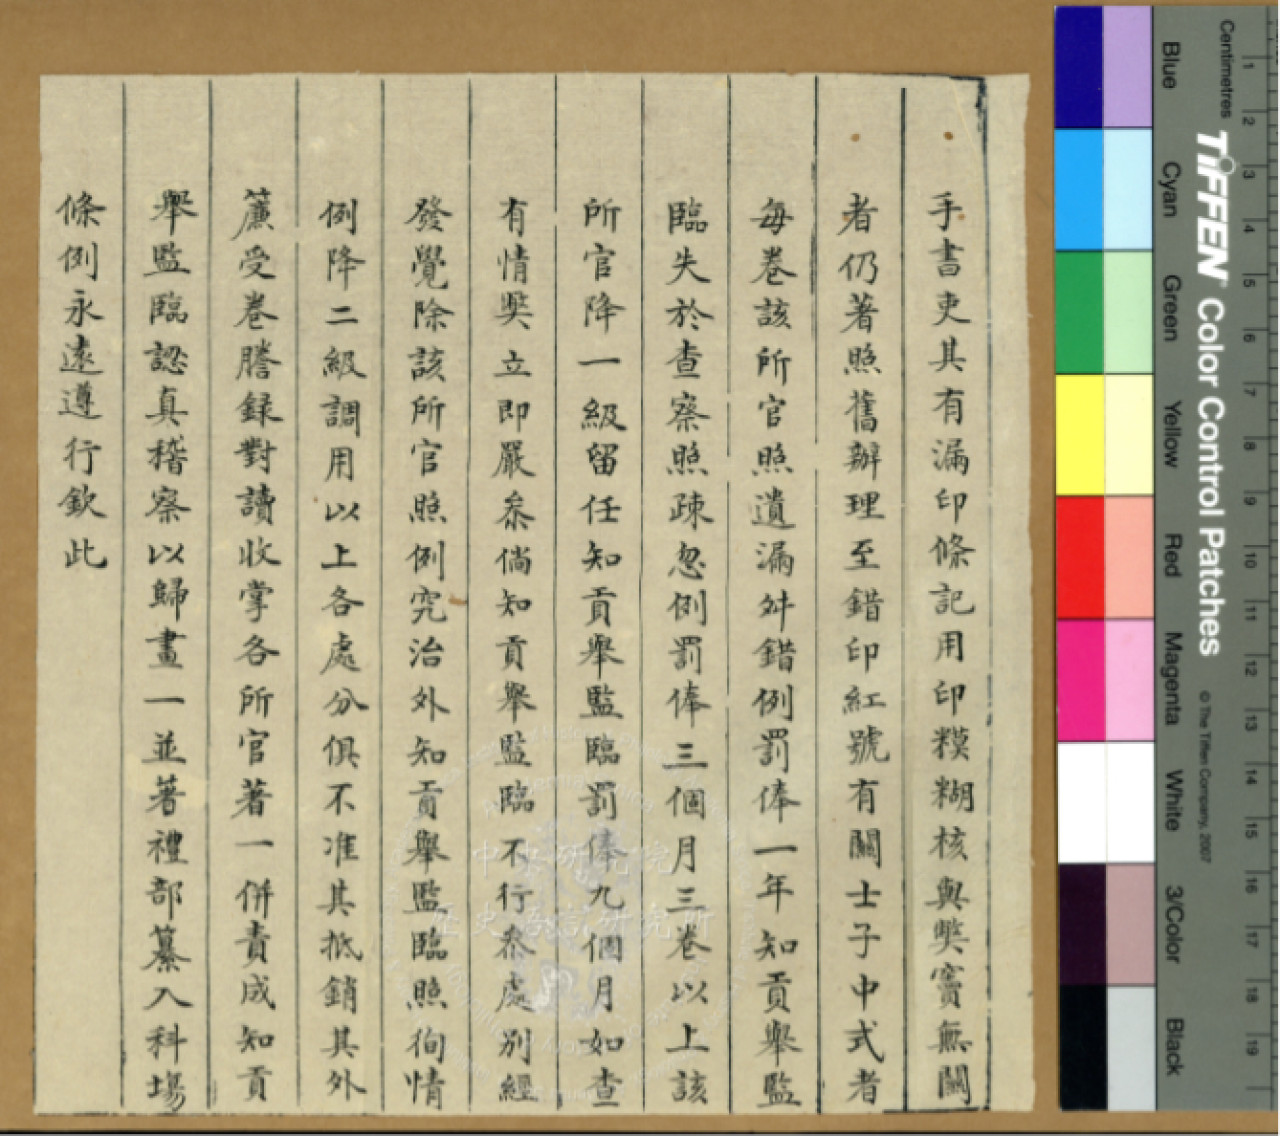 手書吏其有漏印條記用印糢糊核與弊竇無關
者仍著照舊辦理至錯印紅號有關士子中式者
每卷該所官照遺漏舛錯例罰俸一年知貢舉監
臨失於查察照疎忽例罰俸三個月三卷以上該
所官降一級留任知貢舉監臨罰俸九個月如查
有情獘立即嚴叅倘知貢舉監臨不行叅處別經
發覺除該所官照例究治外知貢舉監臨照徇情
例降二級調用以上各處分俱不准其抵銷其外
簾受卷謄録對讀收掌各所官著一併責成知貢
舉監臨認真稽察以歸畫一並著禮部纂入科場
條例永遠遵行欽此
中央研究院
歷史語言研究所
Centimetres
TIFFEN Color Control Patches
© The Tiffen Company, 2007
Blue
Cyan
Green
Yellow
Red
Magenta
White
3/Color
Black
1
2
3
4
5
6
7
8
9
10
11
12
13
14
15
16
17
18
19